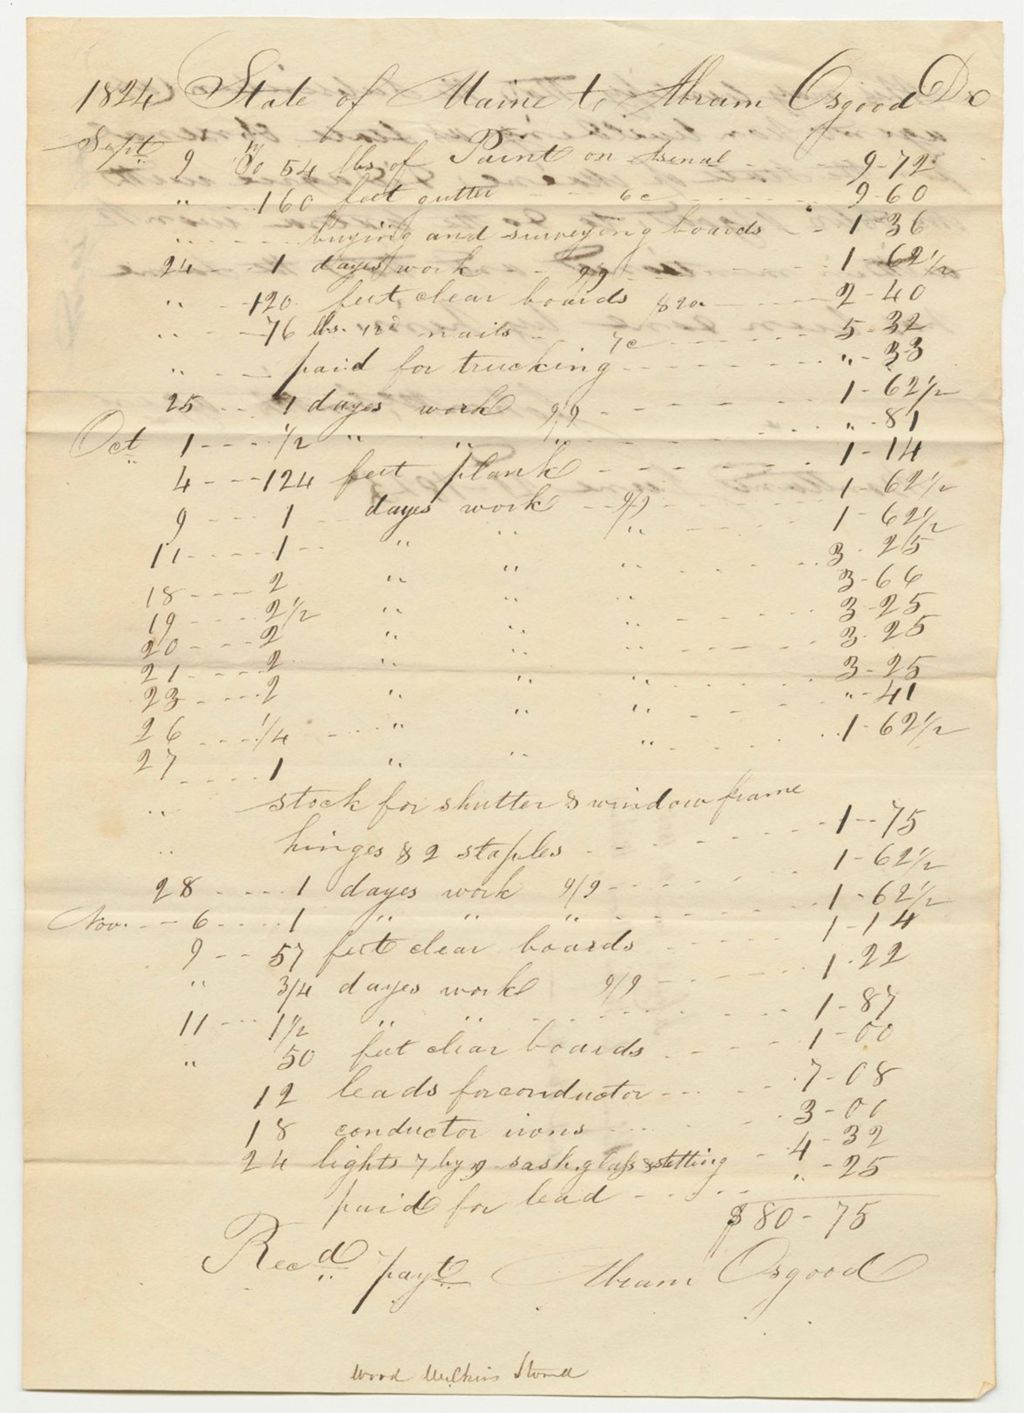 1824 State of Maine to Abram Osgood Dr
Sept 9 To 54 lbs of Paint on Arsenal 9-72
" 160 feet gutter 6c 9-60
" buying and surveying boards 1-36
24 1 dayes work 9/9 1-62 1/2
" 120 feet clear boards $20 2-40
" 76 lbs. nails 7c 5-32
" paid for trucking "-33
25 1 dayes work 9/9 1-62 1/2
Oct 1 1/2 " " " "-81
4 124 feet plank 1-14
9 1 dayes work 9/9 1-62 1/2
11 1 " " " 1-62 1/2
18 2 " " " 3-25
19 2 1/2 " " " 3-66
20 2 " " " 3-25
21 2 " " " 3-25
23 2 " " " 3-25
26 1/4 " " " "-41
27 1 " " " 1-62 1/2
" stock for shutter & window frame
" hinges & 2 staples 1-75
28 1 dayes work 9/9 1-62 1/2
Nov. 6 1 " " " 1-62 1/2
9 57 feet clear boards 1-14
" 3/4 dayes work 9/9 1.22
11 1 1/2 " " 1-87
" 50 feet clear boards 1-00
12 leads for conductor 7-08
18 conductor irons 3-00
24 lights 7 by 9 sash, glass & setting 4-32
paid for lead "-25
$80-75
Recd payt Abram Osgood
Wood